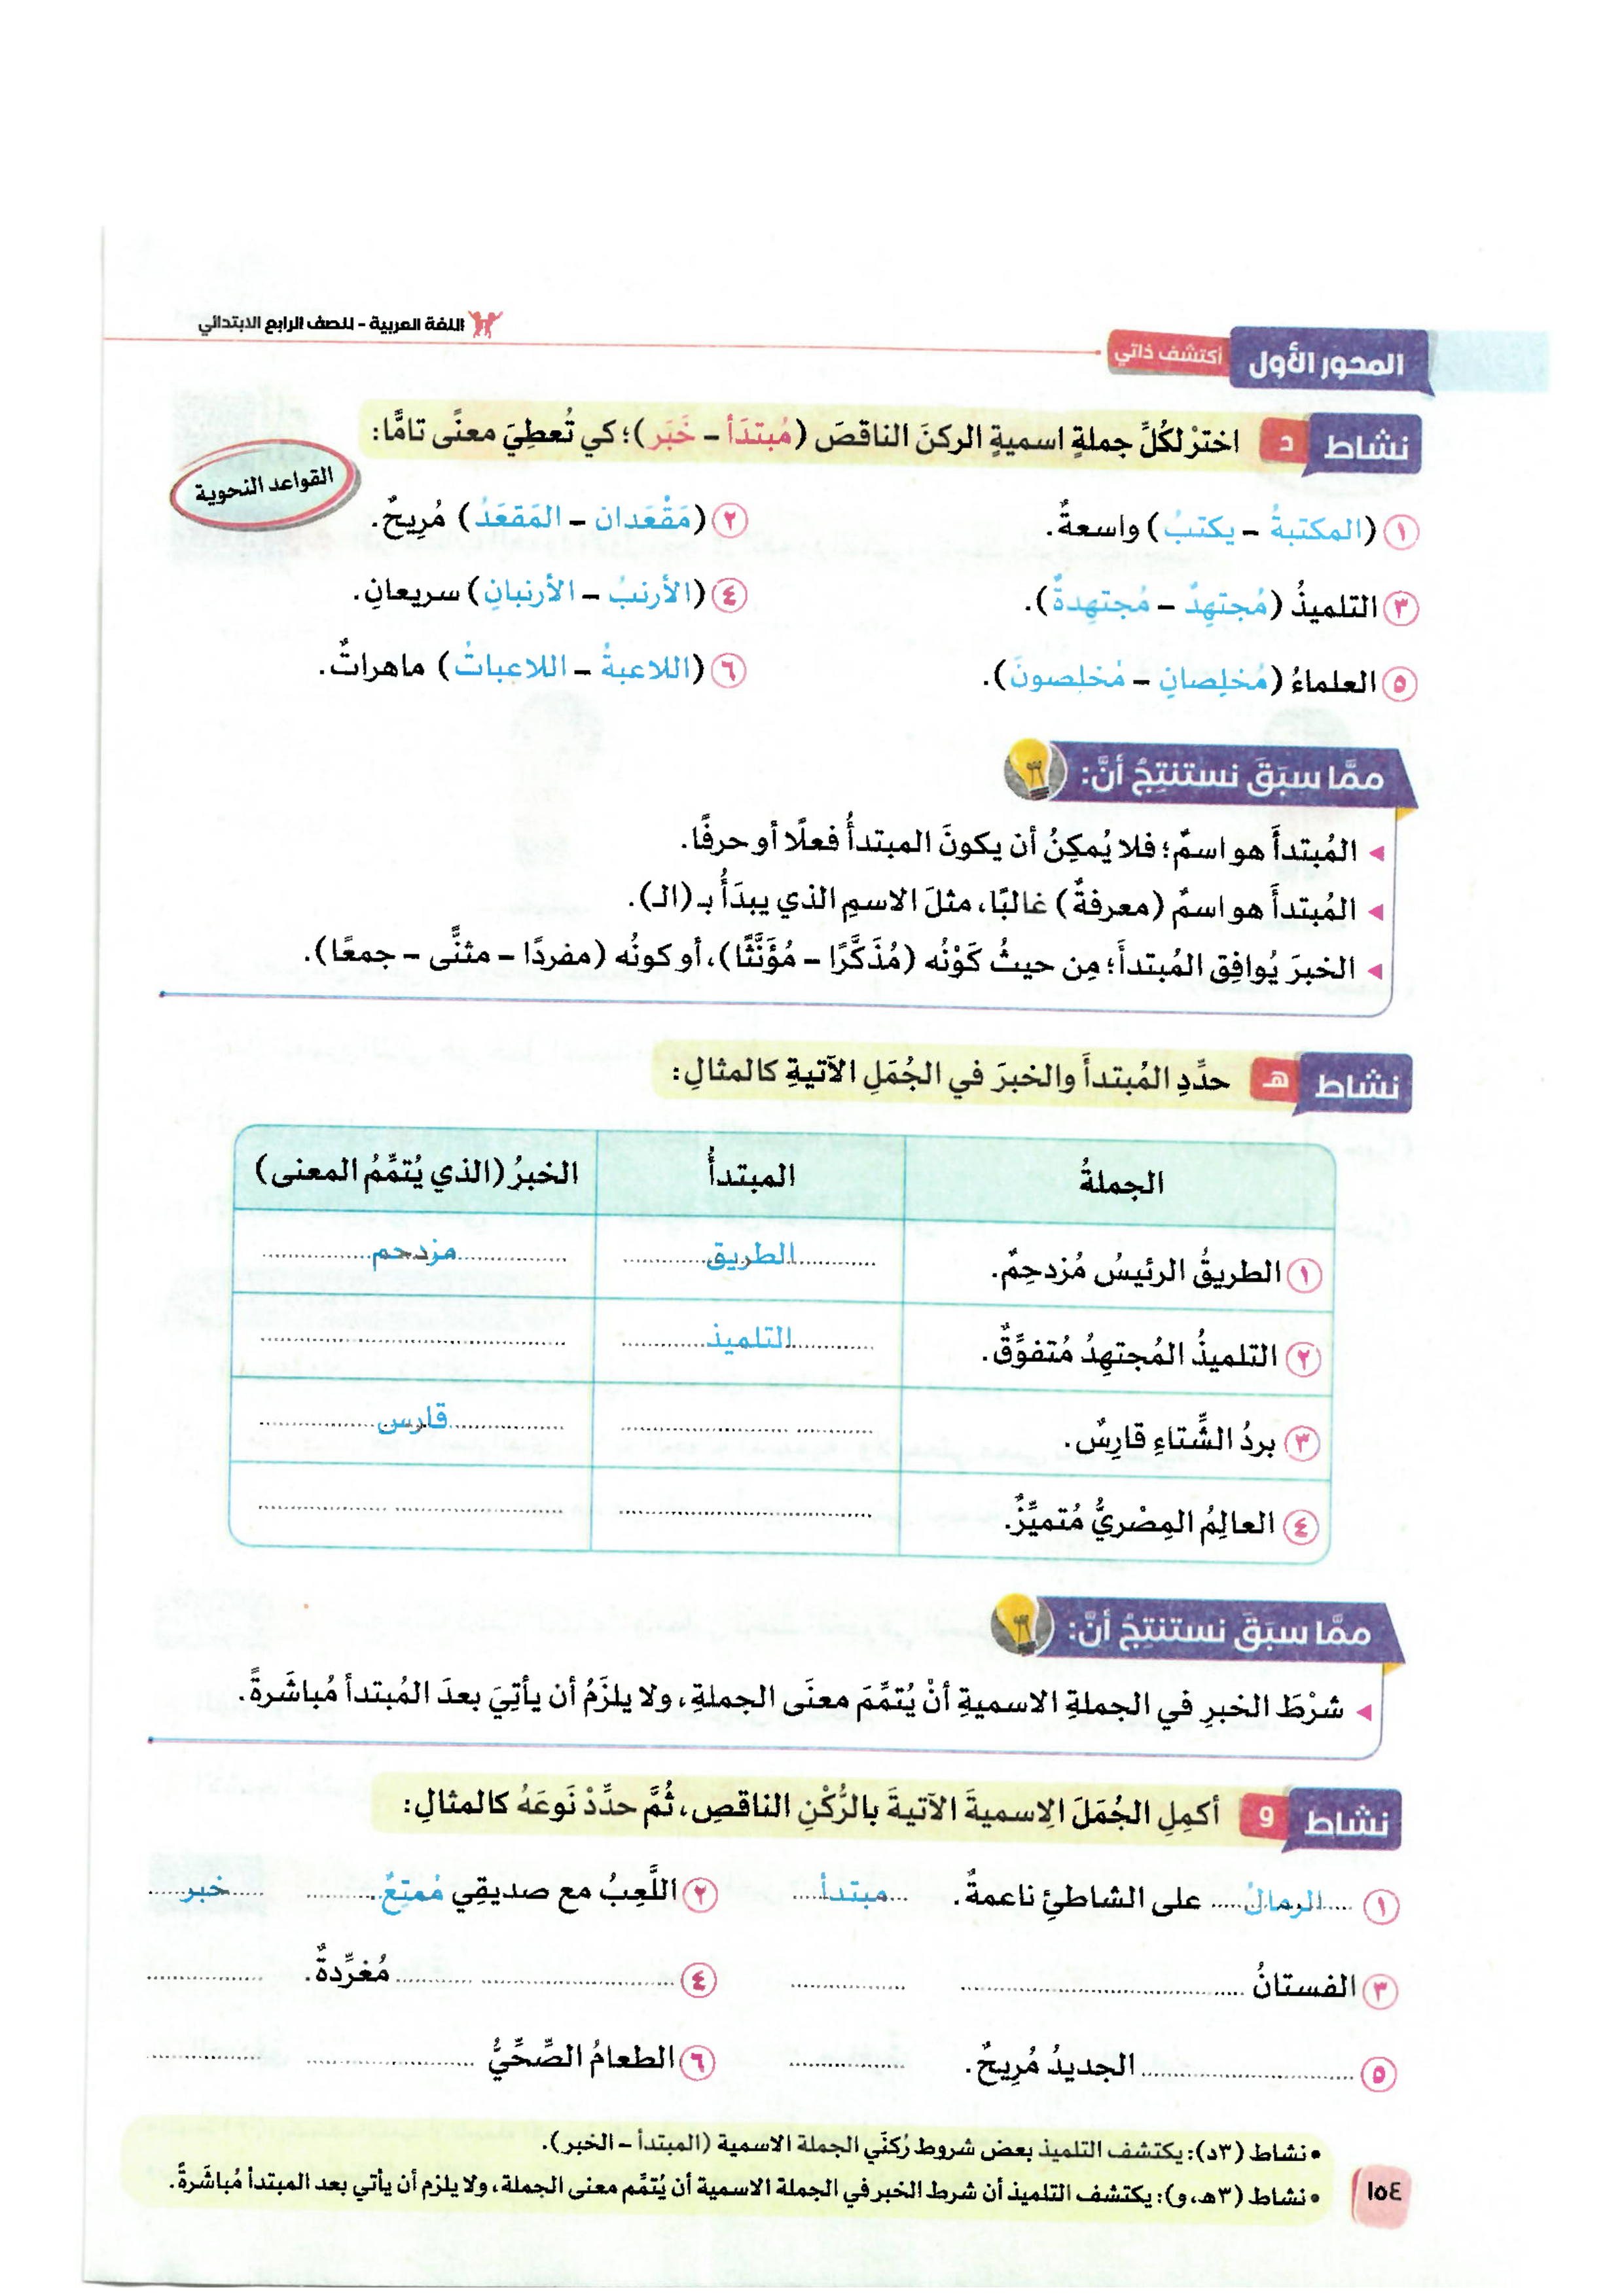 اللغة العربية - للصف الرابع الابتدائي
المحور الأول أكتشف ذاتي
نشاط د اخترْ لكُلِّ جملةٍ اسميةٍ الركنَ الناقصَ (مُبتدَأ - خَبَر)؛ كي تُعطِيَ معنًى تامًّا:
القواعد النحوية
١ (المكتبةُ - يكتبُ) واسعةٌ.
٢ (مَقْعَدان - المَقعَدُ) مُرِيحٌ.
٣ التلميذُ (مُجتهِدٌ - مُجتهِدةٌ).
٤ (الأرنبُ - الأرنبانِ) سريعانِ.
٥ العلماءُ (مُخلِصانِ - مُخلِصونَ).
٦ (اللاعبةُ - اللاعباتُ) ماهراتٌ.
ممَّا سبَقَ نستنتِجُ أنَّ:
المُبتدأَ هو اسمٌ؛ فلا يُمكِنُ أن يكونَ المبتدأُ فعلًا أو حرفًا.
المُبتدأَ هو اسمٌ (معرفةٌ) غالبًا، مثلَ الاسمِ الذي يبدَأُ بـ (الـ).
الخبرَ يُوافِق المُبتدأَ؛ مِن حيثُ كَوْنُه (مُذَكَّرًا - مُؤَنَّثًا)، أو كونُه (مفردًا - مثنًّى - جمعًا).
نشاط هـ حدِّدِ المُبتدأَ والخبرَ في الجُمَلِ الآتيةِ كالمثالِ:
الجملةُ المبتدأُ الخبرُ (الذي يُتمِّمُ المعنى)
١ الطريقُ الرئيسُ مُزدحِمٌ. الطريق مزدحم
٢ التلميذُ المُجتهِدُ مُتفوِّقٌ. التلميذ
٣ بردُ الشِّتاءِ قارِسٌ. قارس
٤ العالِمُ المِصْريُّ مُتميِّزٌ.
ممَّا سبَقَ نستنتِجُ أنَّ:
شرْطَ الخبرِ في الجملةِ الاسميةِ أنْ يُتمِّمَ معنَى الجملةِ، ولا يلزَمُ أن يأتِيَ بعدَ المُبتدأ مُباشَرةً.
نشاط و أكمِلِ الجُمَلَ الِاسميةَ الآتيةَ بالرُّكْنِ الناقصِ، ثُمَّ حدِّدْ نَوعَهُ كالمثالِ:
١ الرمالُ على الشاطئِ ناعمةٌ. مبتدأ
٢ اللَّعِبُ مع صديقِي مُمتِعٌ. خبر
٣ الفستانُ
٤ مُغرِّدةٌ.
٥ الجديدُ مُرِيحٌ.
٦ الطعامُ الصِّحِّيُّ
• نشاط (٣د): يكتشف التلميذ بعض شروط رُكنَي الجملة الاسمية (المبتدأ - الخبر).
• نشاط (٣هـ، و): يكتشف التلميذ أن شرط الخبر في الجملة الاسمية أن يُتمِّم معنى الجملة، ولا يلزم أن يأتي بعد المبتدأ مُباشَرةً.
١٥٤